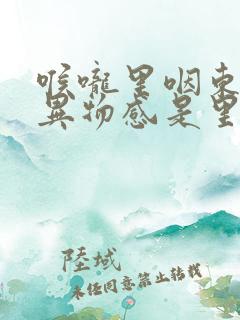 喉嚨里咽東
異物感是里
陸域
未经同意禁止转载